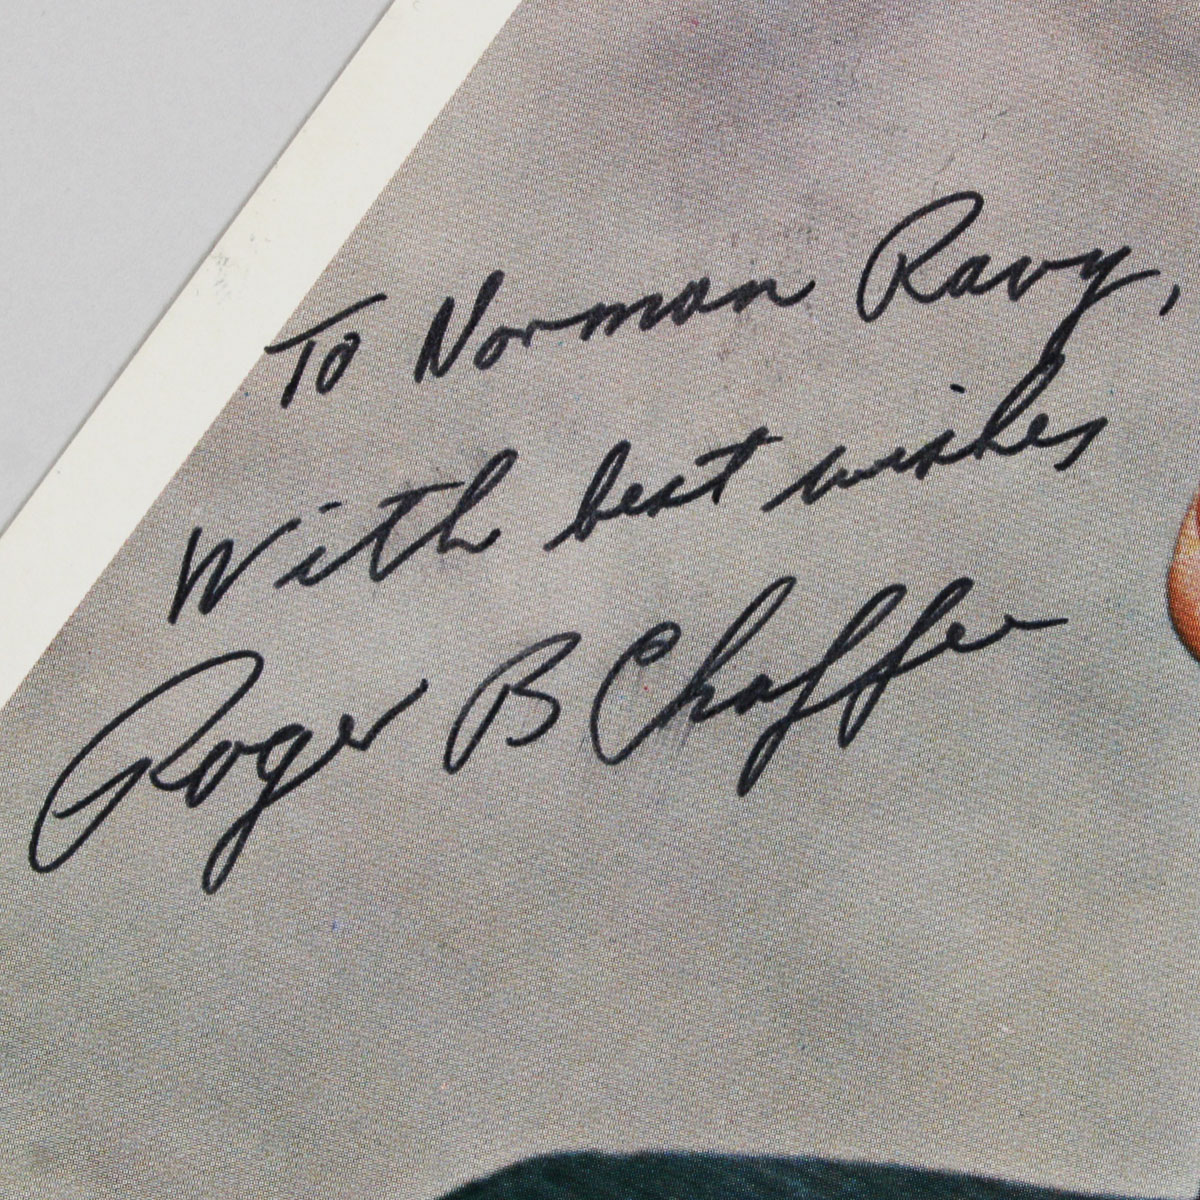 To Norman Ravy,
With best wishes
Roger B Chaffee